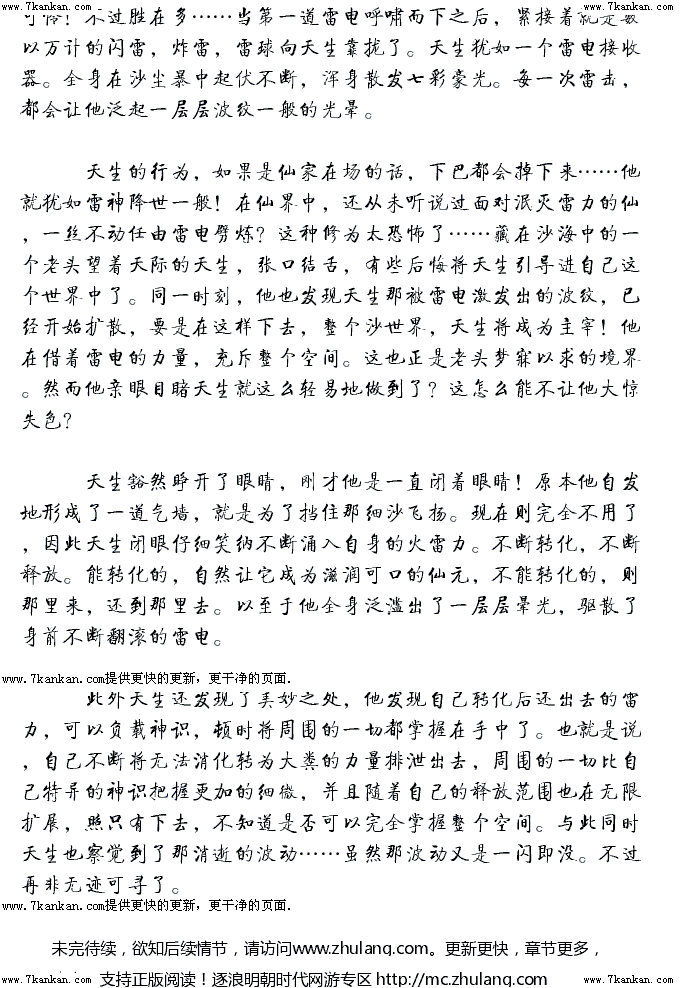 www.7kankan.com www.7kankan.com
不过胜在多……当第一道雷电呼啸而下之后，紧接着就是数
以万计的闪雷，炸雷，雷球向天生靠拢了。天生犹如一个雷电接收
器。全身在沙尘暴中起伏不断，浑身散发七彩豪光。每一次雷击，
都会让他泛起一层层波纹一般的光晕。
天生的行为，如果是仙家在场的话，下巴都会掉下来……他
就犹如雷神降世一般！在仙界中，还从未听说过面对泯灭雷力的仙
，一丝不动任由雷电劈炼？这种修为太恐怖了……藏在沙海中的一
个老头望着天际的天生，张口结舌，有些后悔将天生引导进自己这
个世界中了。同一时刻，他也发现天生那被雷电激发出的波纹，已
经开始扩散，要是在这样下去，整个沙世界，天生将成为主宰！他
在借着雷电的力量，充斥整个空间。这也正是老头梦寐以求的境界
。然而他亲眼目睹天生就这么轻易地做到了？这怎么能不让他大惊
失色？
天生豁然睁开了眼睛，刚才他是一直闭着眼睛！原本他自发
地形成了一道气墙，就是为了挡住那细沙飞扬。现在则完全不用了
，因此天生闭眼仔细笑纳不断涌入自身的火雷力。不断转化，不断
释放。能转化的，自然让它成为滋润可口的仙元，不能转化的，则
那里来，还到那里去。以至于他全身泛滥出了一层层晕光，驱散了
身前不断翻滚的雷电。
www.7kankan.com提供更快的更新，更干净的页面.
此外天生还发现了美妙之处，他发现自己转化后还出去的雷
力，可以负载神识，顿时将周围的一切都掌握在手中了。也就是说
，自己不断将无法消化转为大粪的力量排泄出去，周围的一切比自
己特异的神识把握更加的细微，并且随着自己的释放范围也在无限
扩展，照只有下去，不知道是否可以完全掌握整个空间。与此同时
天生也察觉到了那消逝的波动……虽然那波动又是一闪即没。不过
再非无迹可寻了。
www.7kankan.com提供更快的更新，更干净的页面.
未完待续，欲知后续情节，请访问www.zhulang.com。更新更快，章节更多，
www.7kankan.com 支持正版阅读！逐浪明朝时代网游专区 http://mc.zhulang.com www.7kankan.com